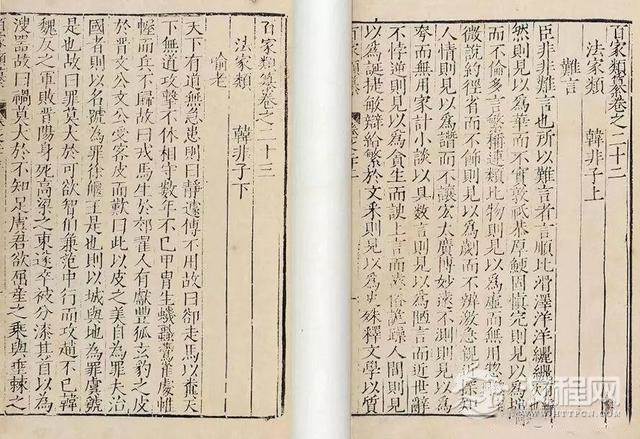 百家類纂卷之二十二
法家類　韓非子上
難言
臣非非難言也所以難言者言順比滑澤洋洋纚纚
然則見以爲華而不實敦祇恭厚鯁固慎完則見以爲
不倫多言繁稱連類比物則見以爲虛而無用
微說約徑省而不飾則見以爲劌而不辯激急親近探知
人情則見以爲譖而不讓宏大廣博妙遠不測則見以爲
而無用家計小談以具數言則見以爲陋言而近世辭
不悖逆則見以爲貪生而諛上言而遠俗詭躁人間則見
以爲誕捷敏辯給繁於文采則見以爲史殊釋文學以質
百家類纂卷之二十三
法家類　韓非子下
喻老
天下有道無急患則曰靜遽傳不用故曰卻走馬以糞天
下無道攻擊不休相守數年不已甲冑生蟣蝨鷰雀處帷
幄而兵不歸故曰戎馬生於郊翟人有獻豐狐玄豹之皮
於晉文公文公受客皮而歎曰此以皮之美自爲罪夫治
國者則以名號爲罪徐偃王是也則以城與地爲罪虞虢
是也故曰罪莫大於可欲智伯兼范中行而攻趙不已韓
魏反之軍敗晉陽身死高梁之東遂卒被分漆其首以爲
溲器故曰禍莫大於不知足虞君欲屈產之乘與垂棘之
汉程网
HTTPCN.COM